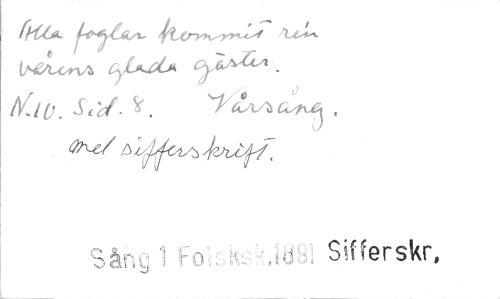 Alla foglar kommit ren
vårens glada gäster.
N.10. Sid. 8. Vårsång.
mel sifferskrift.
Sång 1 Folsksk,1881 Sifferskr,